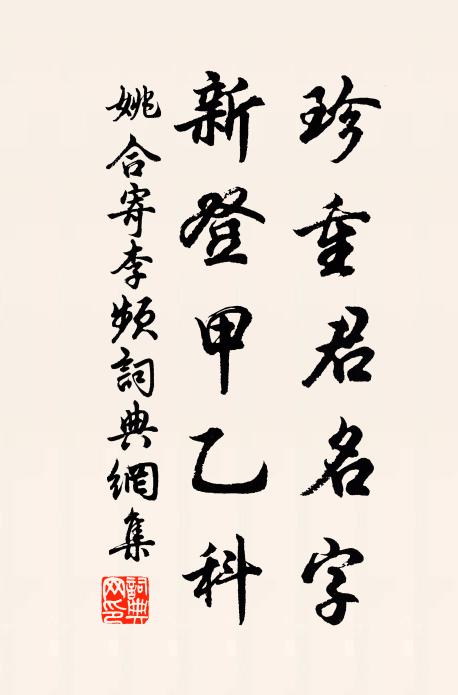 珍重君名字
新登甲乙科
姚合寄李頻詞典網集
詞典網印